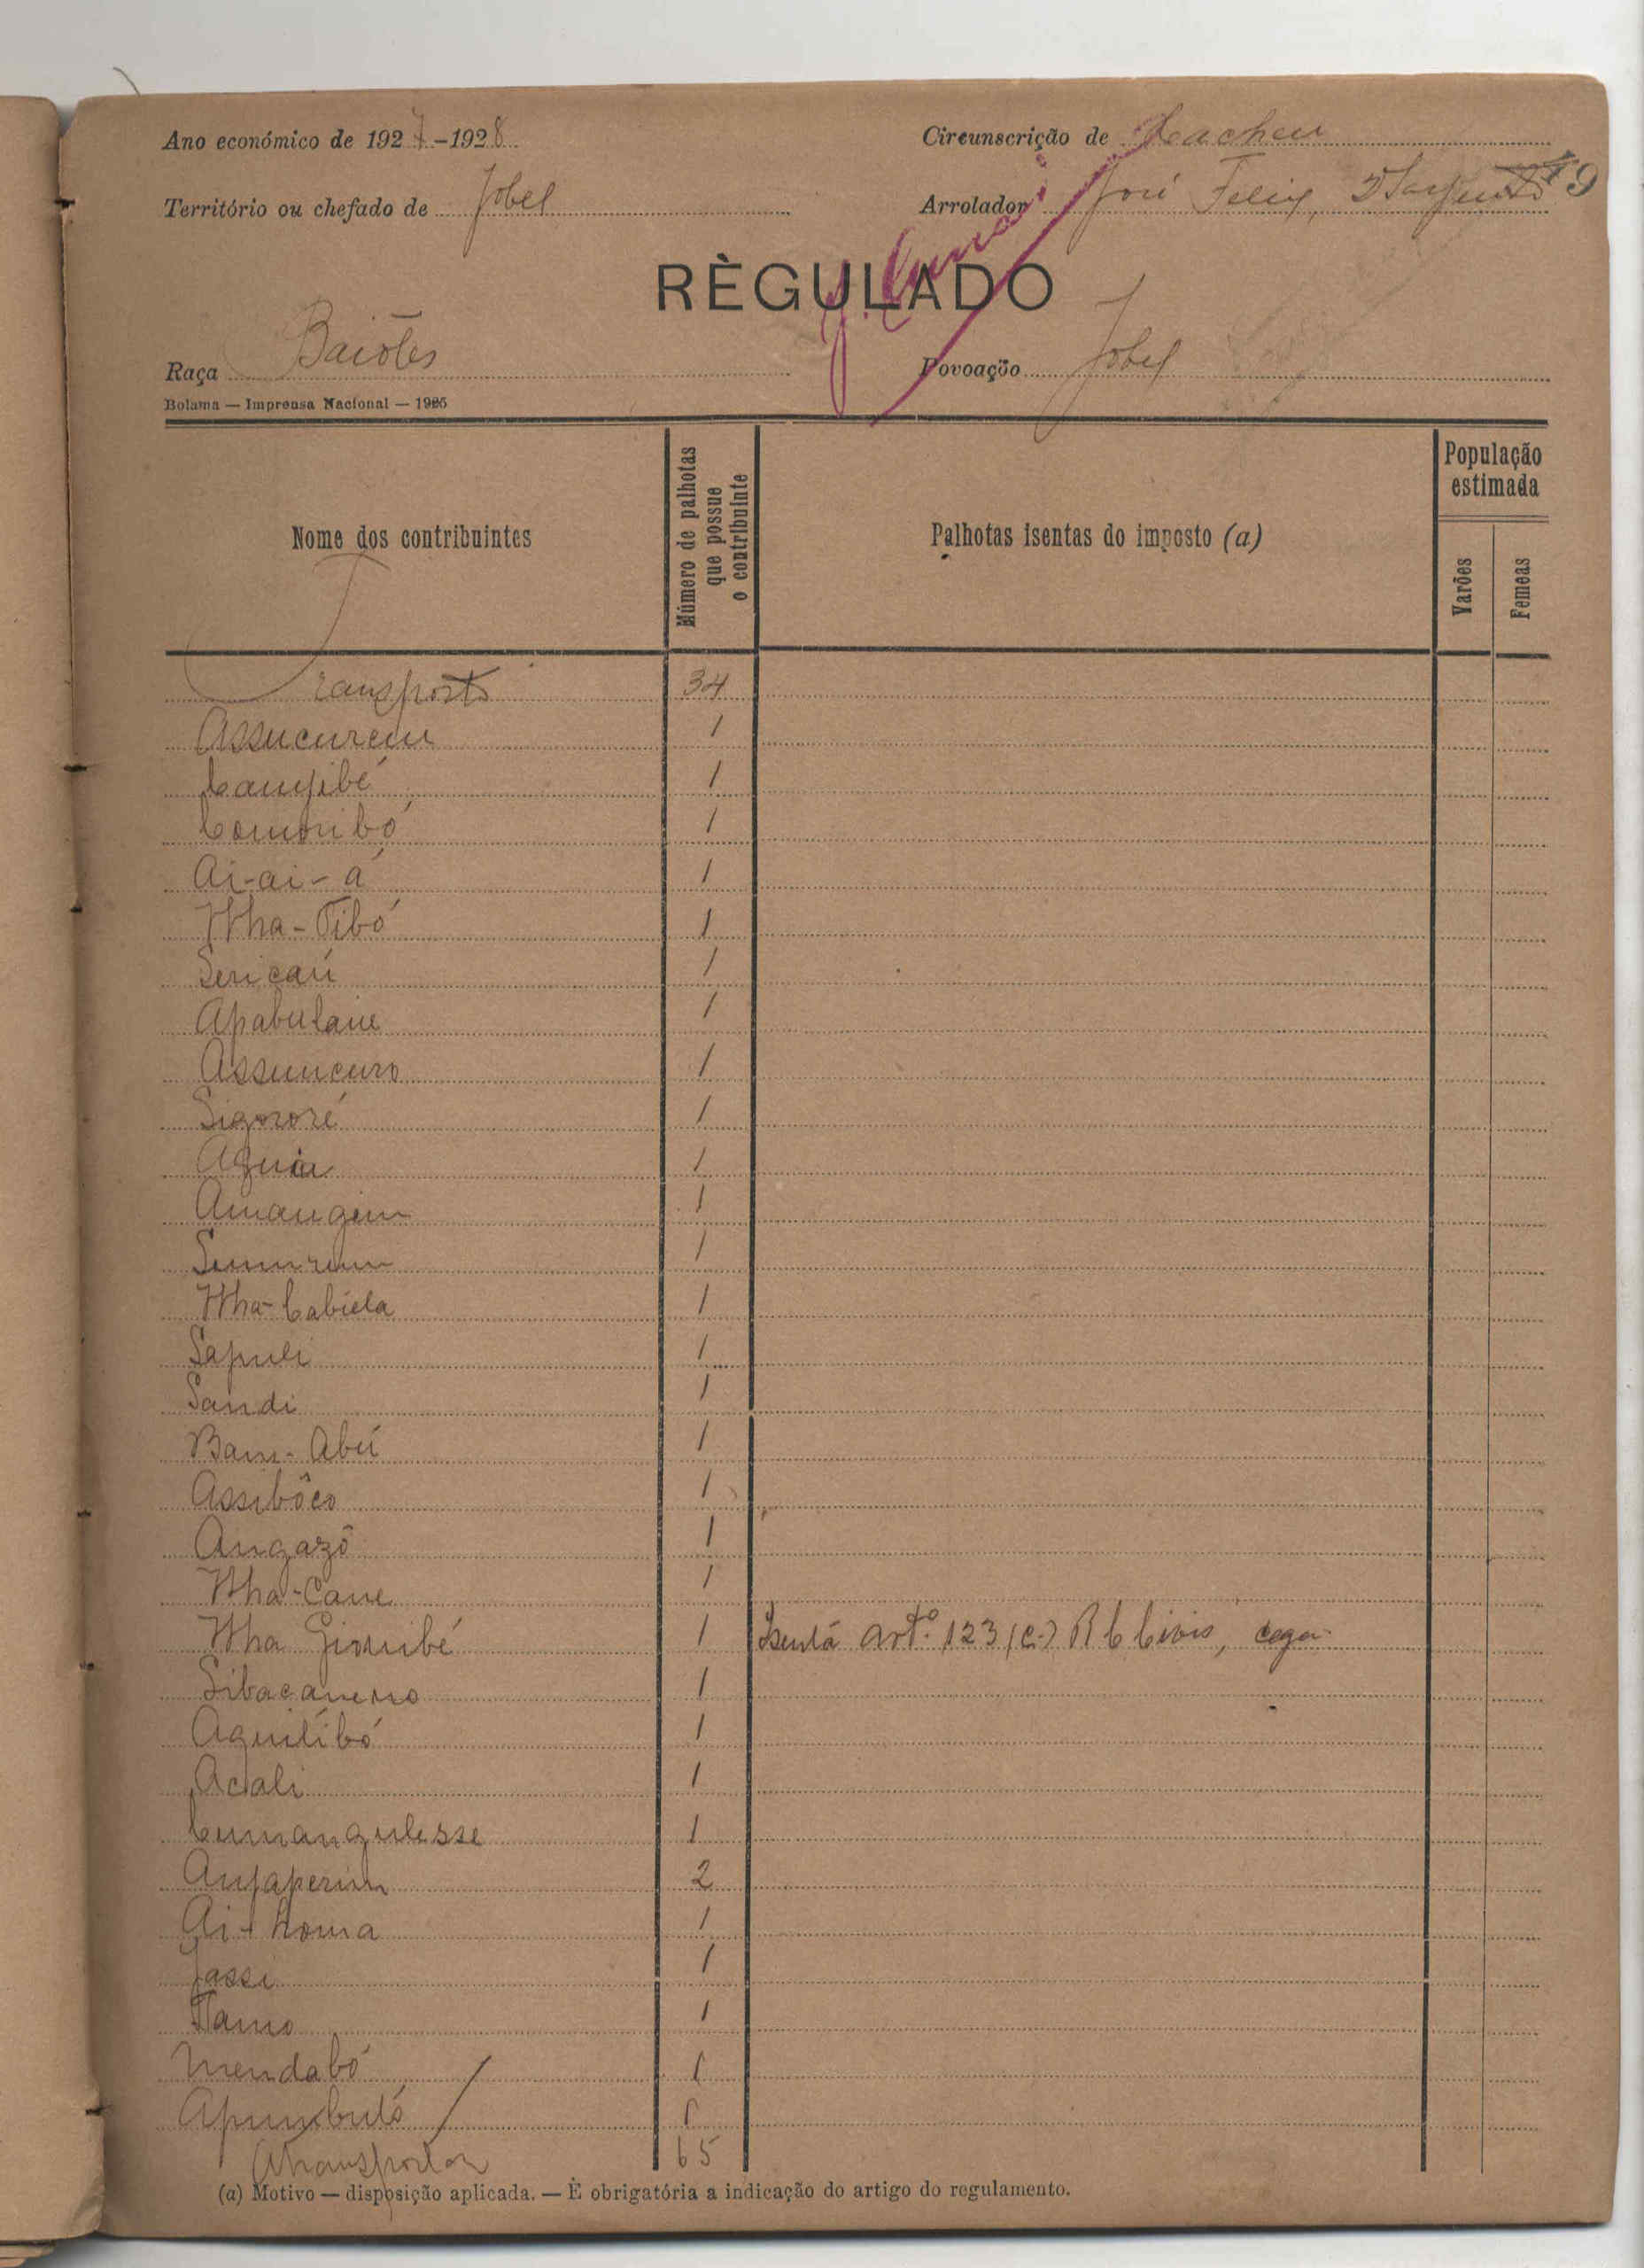 Ano económico de 1927-1928
Circunscrição de Cacheu
19
Território ou chefado de Jobel
Arrolador José Felix, 2º Sargento
RÈGULADO
Raça Baiótes
Povoação Jobel
Bolama — Imprensa Nacional — 1925
Nome dos contribuintes
Número de palhotas que possue o contribuinte
Palhotas isentas do imposto (a)
População estimada
Varões
Femeas
Transporte 34
Assucurem 1
Canjibé 1
Comoribó 1
Ai-ai-á 1
Nha-Tibó 1
Sericaú 1
Apabulaie 1
Assumcuro 1
Sigororé 1
Aguia 1
Amangem 1
1
Nha-Cabiela 1
Sapuli 1
Sandi 1
Bam-Abú 1
Assibôco 1
Angazô 1
Nha-Cane 1
Nha Gionibé 1 Isenta artº. 123 (c) R C Civis, cega
Sibacanerro 1
Aguilibó 1
Acali 1
Cumangulesse 1
Anjaperim 2
Ai-homa 1
Jassi 1
Namo 1
Mendabó 1
Apumbuló 1
A transportar 65
(a) Motivo — disposição aplicada. — É obrigatória a indicação do artigo do regulamento.